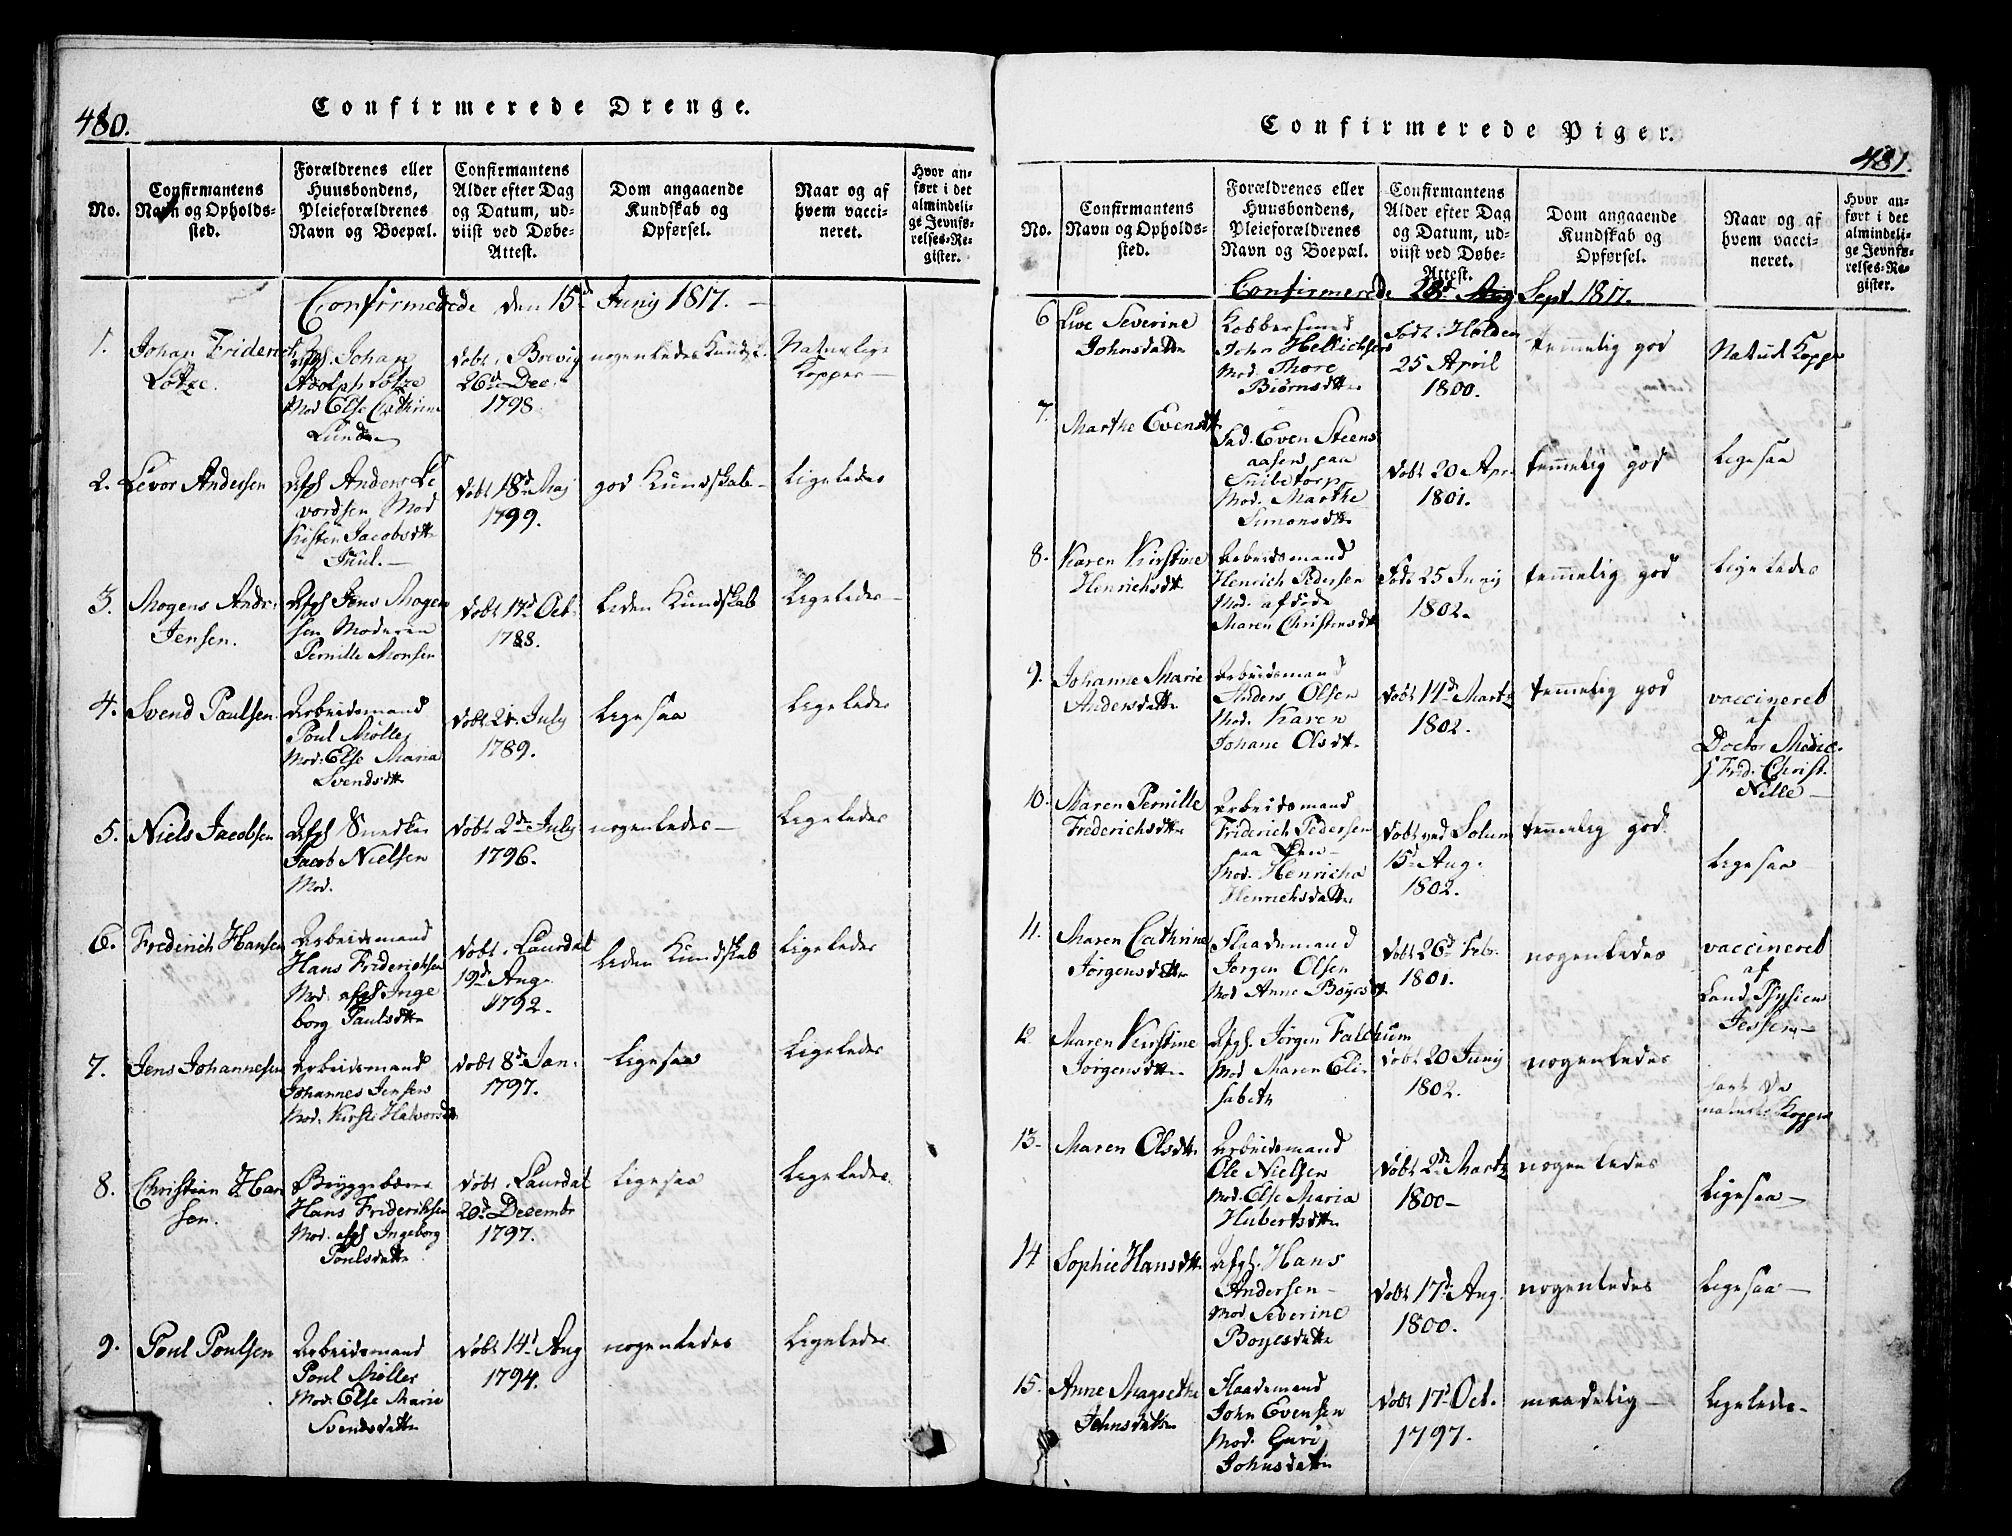 480.
Confirmerede Drenge.
No.
Confirmantens
Navn og Opholds-
sted.
Forældrenes eller
Huusbondens,
Pleieforældrenes
Navn og Boepæl.
Confirmantens
Alder efter Dag
og Datum, ud-
viist ved Døbe-
Attest.
Dom angaaende
Kundskab og
Opførsel.
Naar og af
hvem vacci-
neret.
Hvor an-
ført i det
almindeli-
ge Jevnfø-
relses-Re-
gister.
Confirmerede den 15d Junij 1817.
1.
Johan Friderich
Lotze.
Afg. Johan
Adolph Lotze
Mod Else Cathrine
Lund
Døbt i Brevig
26d Dec.
1798.
nogenledes Kundsk.
Naturlige
Kopper
2.
Levor Andersen
Afg Anders Le
vordsen Mod
Kisten Jacobsdtr
Juul.
Døbt 18d Maj
1799.
god Kundskab
ligeledes
3.
Mogens Andr.
Jensen.
Afg Jens Mogen
sen Moderen
Pernille Monsen
Døbt 17d Octb.
1788.
liden Kundskab
ligeledes
4.
Svend Paulsen
Arbeidsmand
Poul Møller
Mod: Else Maria
Svendsdtr
Døbt 21 July
1789.
ligesaa
ligeledes
5.
Niels Jacobsen
Afg Snedker
Jacob Nielsen
Mod.
Døbt 2d July
1796.
nogenledes
ligeledes
6.
Frederich Hansen
Arbeidsmand
Hans Friderichsen
Mod. afg Inge
borg Paulsdtr
Døbt i Laurdal
19d Aug.
1792.
liden Kundskab
ligeledes
7.
Jens Johannesen
Arbeidsmand
Johannes Jensen
Mod. Kirsti Halvorsdtr
Døbt 8d Jan.
1797.
ligesaa
ligeledes
8.
Christian Han
sen.
Bryggebærer
Hans Frideriksen
Mod. afg Ingeborg
Poulsdattr
Døbt i Laurdal
20d Decembr
1797.
ligesaa
ligeledes
9.
Poul Poulsen
Arbeidsmand
Poul Møller
Mod. Else Marie
Svendsdattr
Døbt 14d Aug
1794.
nogenledes
ligeledes
Confirmerede Piger.
481.
No.
Confirmantens
Navn og Opholds-
sted.
Forældrenes eller
Huusbondens,
Pleieforældrenes
Navn og Boepæl.
Confirmantens
Alder efter Dag
og Datum, ud-
viist ved Døbe-
Attest.
Dom angaaende
Kundskab og
Opførsel.
Naar og af
hvem vacci-
neret.
Hvor an-
ført i det
almindeli-
ge Jevnfø-
relses-Re-
gister.
Confirmerede 28d Aug Sept. 1817.
6
Live Severine
Johnsdattr
Kobbersmed
John Hellichsen
Mod. Thore
Biørnsdtr
Født i Holden
25 April
1800.
temmelig god
Naturl Kopper
7.
Marthe Evensdtr
Sad. Even Steens
aasen paa
Mod. Marthe
Simonsdtr
Døbt 20 Apr.
1801.
temmelig god
ligesaa
8.
Karen Kirstine
Henrichsdtr
Arbeidsmand
Henrich Pedersen
Mod. afdøde
Maren Christensdtr
Født 25 Junij
1802.
temmelig god
ligeledes
9.
Johanne Marie
Andersdattr
Arbeidsmand
Anders Olsen
Mod. Karen
Johane Olsdtr
Døbt 14d Martz
1802.
temmelig god
vaccineret
af
Doctor Medic.
Frid. Christ.
Nille
10.
Maren Pernille
Frederichsdtr
Arbeidsmand
Friderich Pedersen
paa Øen
Mod. Henricha
Henrichsdattr
Døbt ved Solum
15d Aug.
1802.
temmelig god.
ligesaa
11.
Maren Cathrine
Jørgensdattr
Flaademand
Jørgen Olsen
Mod Anne Boyesdtr
Døbt 26d Febr.
1801.
nogenledes
vaccineret
af
Land Physicus
Jessen
12
Maren Kirstine
Jørgensdtr
Afg. Jørgen Falchum
Mod Maren Eli-
sabeth
Døbt 20 Junij
1802.
nogenledes
havt de
naturl Kopper
13.
Maren Olsdtr
Arbeidsmand
Ole Nielsen
Mod. Else Maria
Hubertsdtr
Døbt 2d Martz
1800
nogenledes
ligesaa
14
Sophie Hansdtr
Afg. Hans
Andersen
Mod Severine
Boyesdattr
Døbt 17d Aug.
1800.
nogenledes
ligesaa
15.
Anne Magrethe
Johnsdattr
Flaademand
John Evensen
Mod. Guri
Johnsdattr
Døbt 17d Oct.
1797.
maadelig
ligeledes